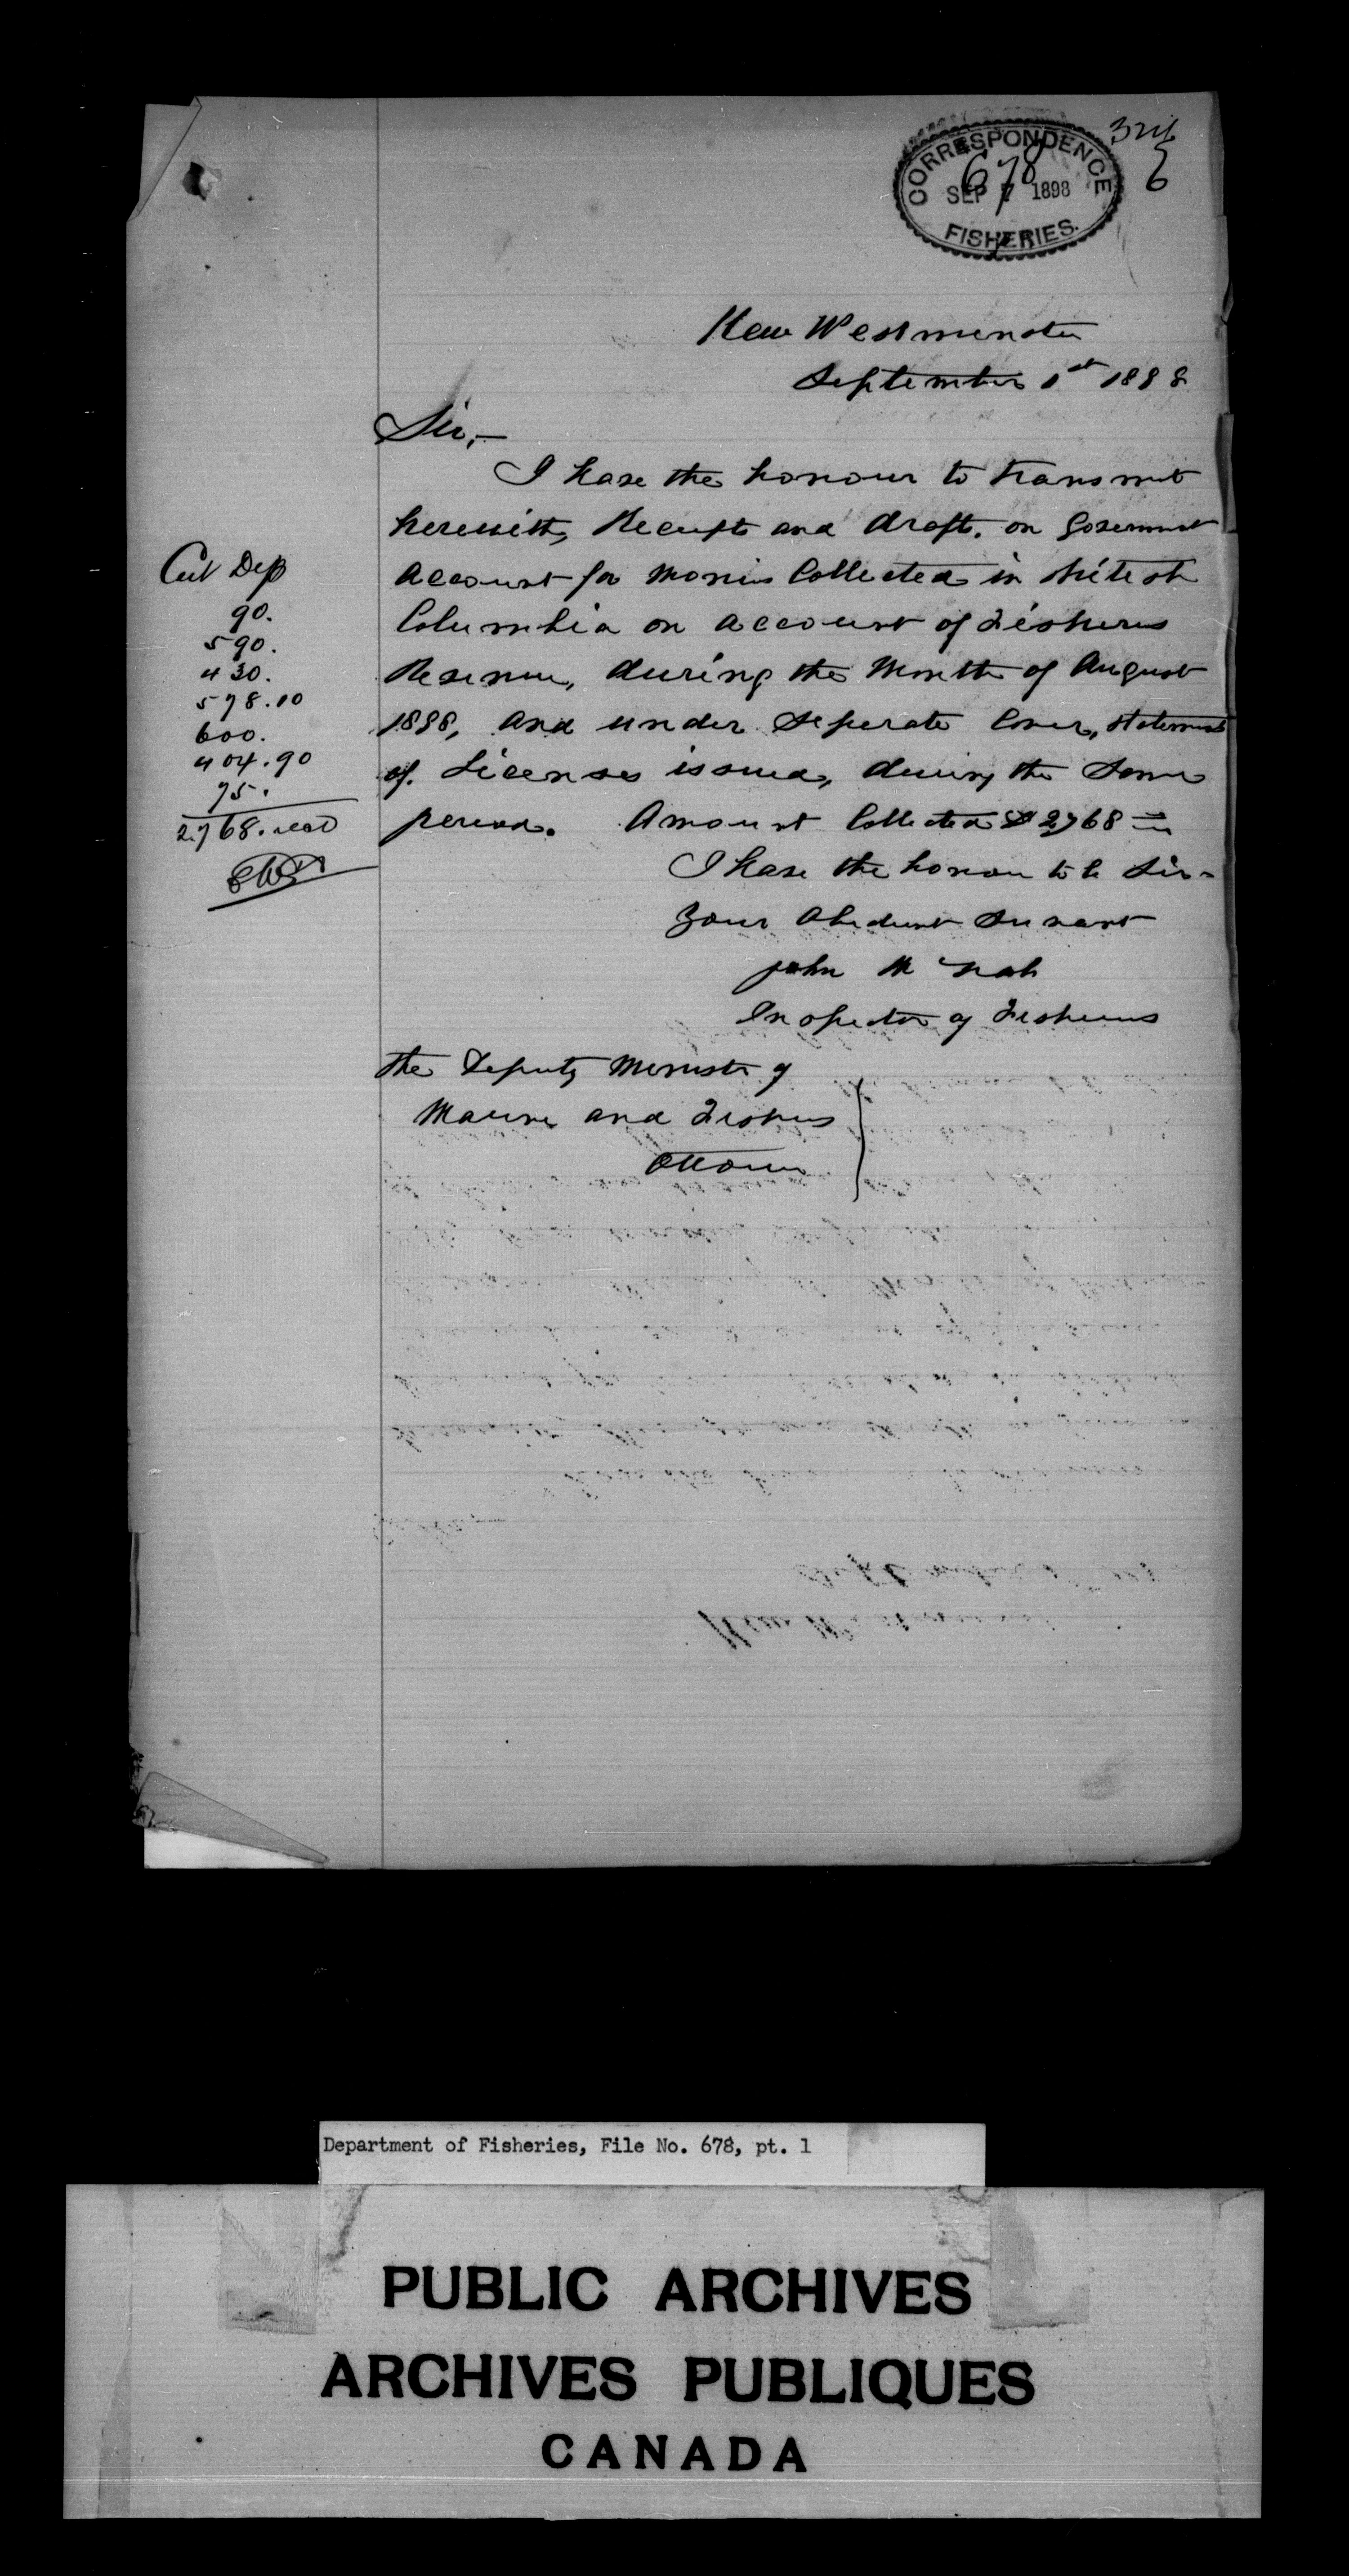 324
6
CORRESPONDENCE
678
SEP 7 1898
FISHERIES.
New Westminster
September 1st 1898
Sir,—
I have the honour to transmit
herewith, Receipts and draft. on Goverment
account for Monies Collected in British
Columbia on account of Fisheries
Revenue, during the Month of August
1898, and under Seperate Cover, statement
of. Licenses issued, during the Same
period. Amount Collected $2768
I have the honour to be Sir-
Your Obedient Servant
John McNab
Inspector of Fisheries
The Deputy Minister of
Marine and Fisheries
Ottawa
Dep
90.
590.
430.
578.10
600.
404.90
75.
2768.
Department of Fisheries, File No. 678, pt. 1
PUBLIC ARCHIVES
ARCHIVES PUBLIQUES
CANADA